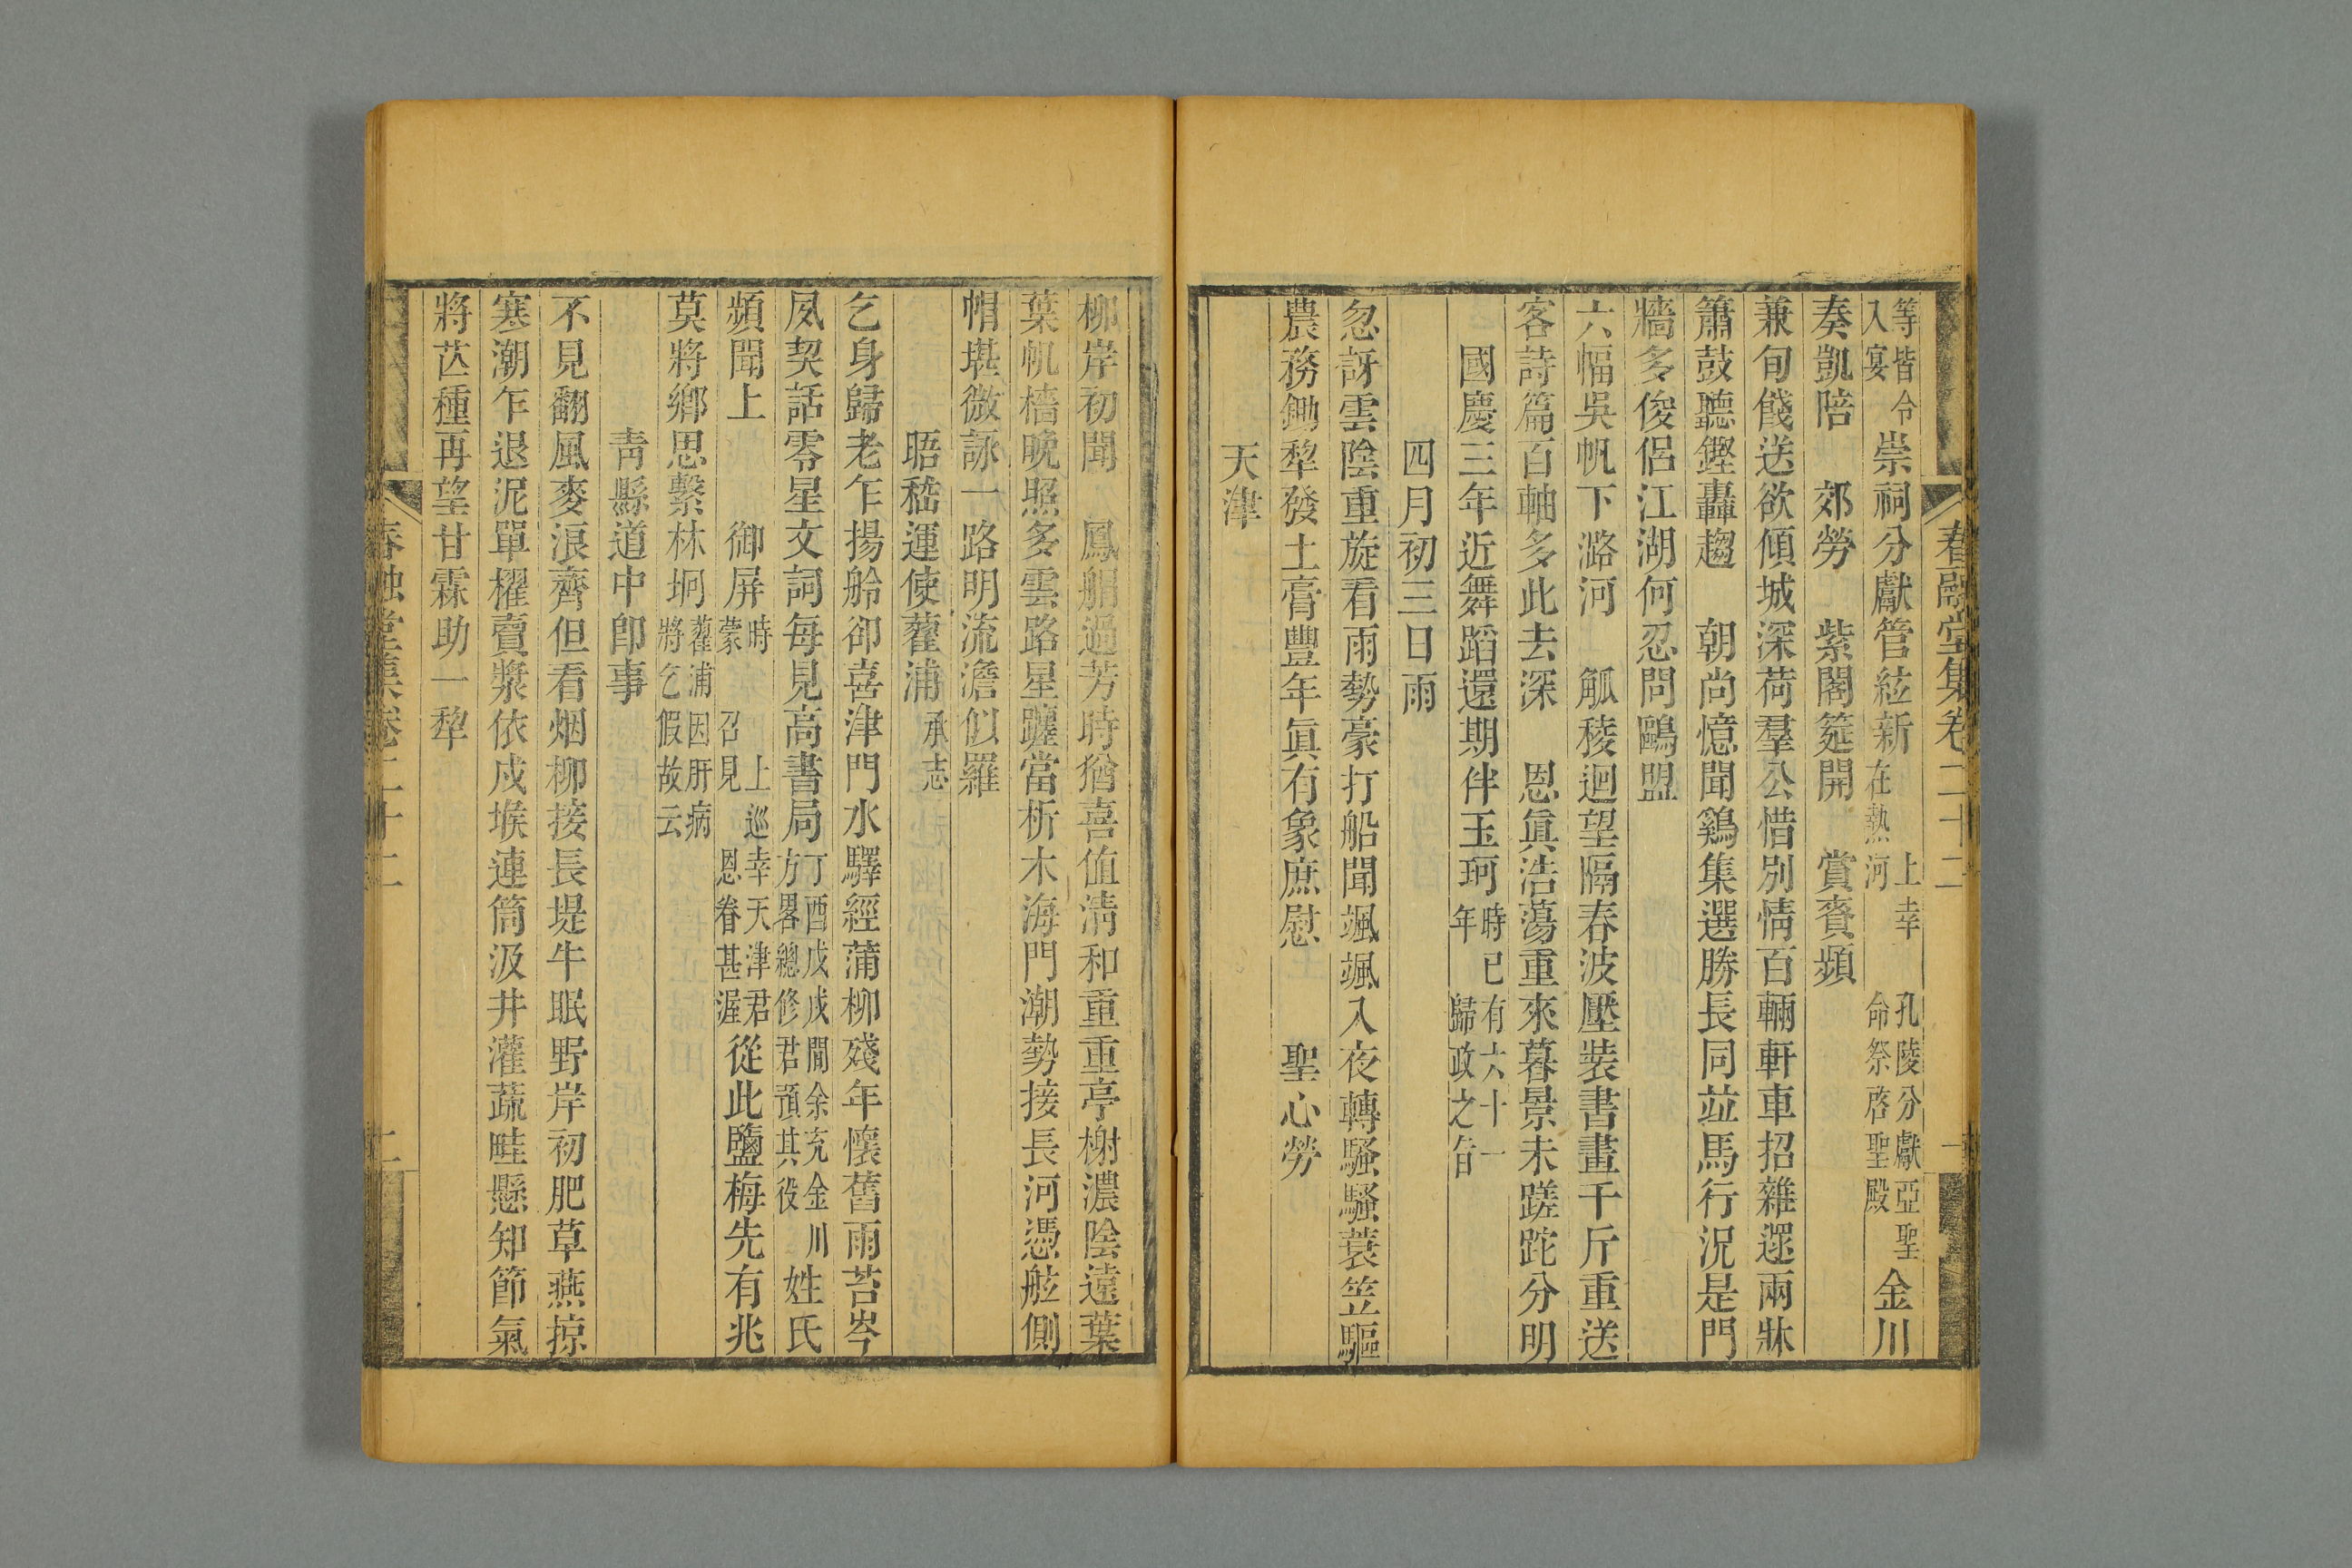 春融堂集卷二十二
一
等皆令入宴崇祠分獻管絃新上幸在熱河孔陵分獻亞聖命祭啓聖殿金川
奏凱陪 郊勞 紫閣筵開 賞賚頻
兼旬餞送欲傾城深荷羣公惜別情百輛軒車招雜遝兩牀
簫鼓聽鏗轟趨 朝尚憶聞鷄集選勝長同竝馬行況是門
牆多俊侶江湖何忍問鷗盟
六幅吳帆下潞河 觚稜迴望隔春波壓裝書畫千斤重送
客詩篇百軸多此去深 恩眞浩蕩重來暮景未蹉跎分明
國慶三年近舞蹈還期伴玉珂時已有六十一年歸政之旨
四月初三日雨
忽訝雲陰重旋看雨勢豪打船聞颯颯入夜轉騷騷蓑笠驅
農務鋤犂發土膏豐年眞有象庶慰 聖心勞
天津
柳岸初聞 鳳舸過芳時猶喜值淸和重重亭榭濃陰遠葉
葉帆檣晩照多雲路星躔當析木海門潮勢接長河憑舷側
帽堪微詠一路明流澹似羅
晤嵇運使蘿浦承志
乞身歸老乍揚舲卻喜津門水驛經蒲柳殘年懷舊雨苔岑
夙契話零星文詞每見高書局丁酉戊戌間余充金川方畧總修君預其役姓氏
頻聞上 御屏時 上巡幸天津君蒙 召見 恩眷甚渥從此鹽梅先有兆
莫將鄕思繫林坰蘿浦因肝病將乞假故云
靑縣道中卽事
不見翻風麥浪齊但看烟柳接長堤牛眠野岸初肥草燕掠
寒潮乍退泥單櫂賣漿依戍堠連筒汲井灌蔬畦懸知節氣
將芒種再望甘霖助一犂
春融堂集卷二十二
二